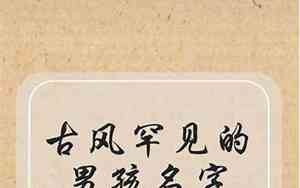 古风罕见的
男孩名字